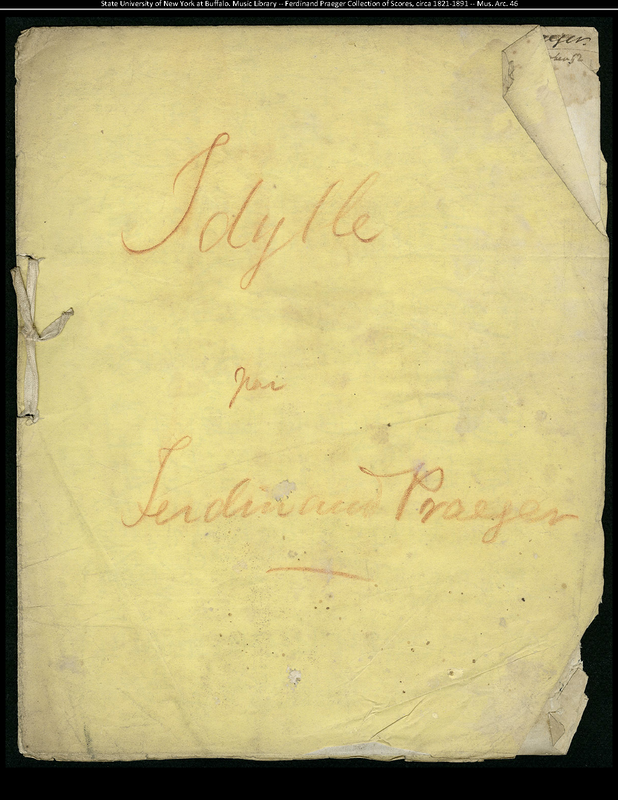 State University of New York at Buffalo. Music Library -- Ferdinand Praeger Collection of Scores, circa 1821-1891 -- Mus. Arc. 46
Idylle
par
Ferdinand Praeger